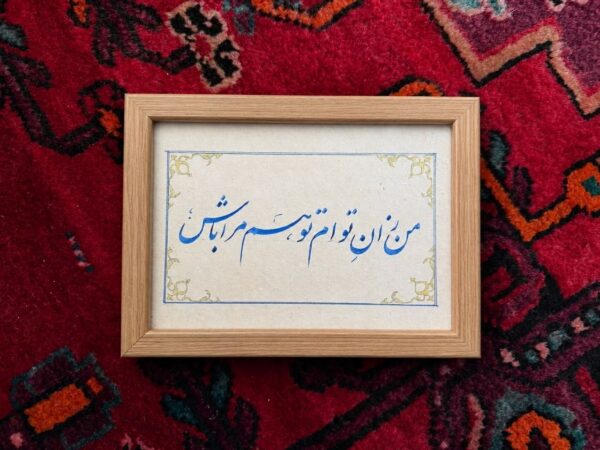 من زان توام تو هم مرا باش